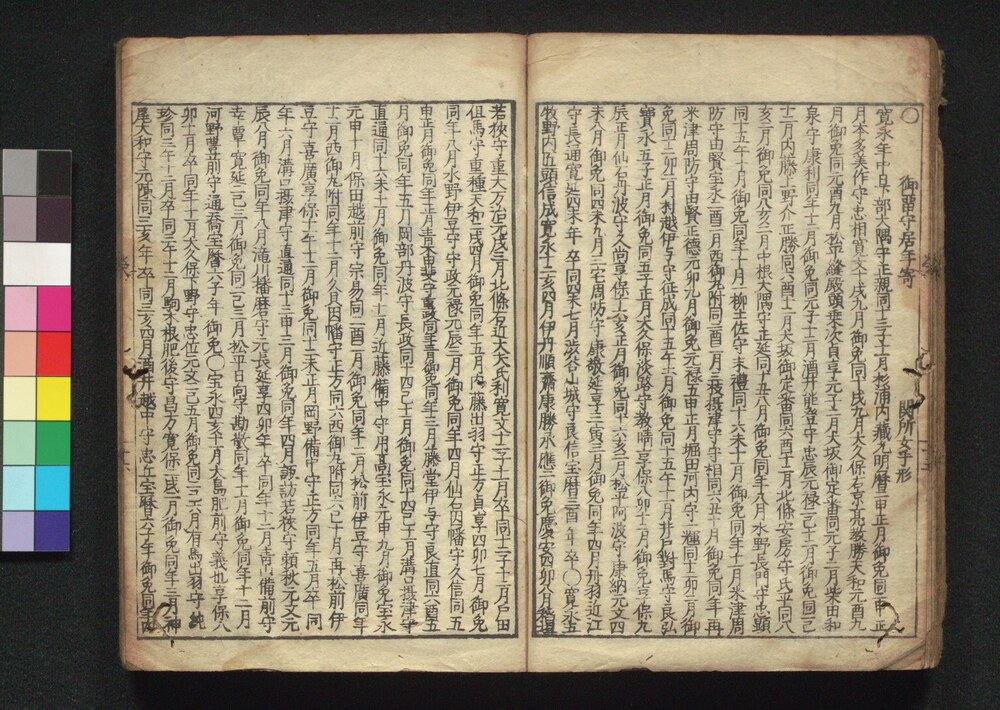 〇 御留守居年寄 関所女手形
寛永年中日下部大隅守正親同十三子十一月杉浦内蔵允明暦二申正月御免同二申正
月本多美作守忠相寛文十戌九月御免同十戌九月大久保右京亮
月御免同元酉八月松平縫殿頭乗次貞享元子十二月大坂御定番同元子十二月柴田和
泉守康利同年十二月御免同元子十二月酒井能登守忠辰元禄二巳十一月御免同二巳
十二月内藤上野介正勝同六酉十二月大坂御定番同六酉十二月北條安房守氏平同八
亥二月御免同八亥二月中根大隅守正延同十五午八月御免同年八月水野長門守忠顕
同十五午十月御免同年十月柳生土佐守 同十六未十月御免同年十一月米津周
防守由賢宝永二酉二月西御丸附同二酉二月三枝摂津守守相同六丑十月御免同年再
米津周防守由賢正徳元卯九月御免元禄五申正月堀田河内守一輝同十二卯二月御
免同十二卯二月村越伊予守征成同十五午六月御免同十五午十二月井戸対馬守良弘
宝永五子正月御免同五子正月大久保淡路守教晴享保八卯十二月御免享保九
辰正月仙石丹波守久尚享保十六亥正月御免同十六亥二月松平阿波守康納元文四
未八月御免同四未九月三宅周防守康敬延享三寅三月御免同年四月丹羽近江
守長通寛延四未年 卒同四未七月渋谷山城守良信宝暦三酉年卒〇寛永五
牧野内匠頭信成寛永十二亥四月伊丹順斎康勝承応二 御免慶安四卯八月稲垣
若狭守重大万治元戌三月北條右近大夫氏利寛文十二子十一月卒同十二子十二月戸田
但馬守重種天和二戌四月御免同年五月内藤出羽守正方貞享四卯七月御免
同年八月水野伊豆守守政元禄元辰三月御免同元年四月仙石因幡守久信同五
申正月御免同年 青木甲斐守重 同年 月御免同年三月藤堂伊予守良直同六酉五
月御免同年五月岡部丹波守長政同十四巳十一月御免同十四巳十一月溝口摂津守
直通同十六未十月御免同年十一月近藤備中守用高宝永元申九月御免宝永
元申十月保田越前守宗易同二酉二月御免同年二月松前伊豆守喜広同年
十二月西御丸附同年十二月久貝因幡守正方同六西御丸附同六巳十月再松前伊
豆守喜広享保六丑十二月御免同十二未正月岡野備中守正方同年五月卒同
年六月溝口摂津守直道同十三申三月御免同年四月諏訪若狭守頼秋元文元
辰八月御免同年八月滝川播磨守元長延享四卯年卒同年十二月青山備前守
幸覃寛延二巳三月御免同二巳三月松平日向守勘敬同年十一月御免同年十二月
河野豊前守通喬宝暦六子年御免〇宝永四亥十月大島肥前守義也享保八
卯十一月卒同年十月大久保下野守忠位元文二巳五月御免同二巳六月有馬出羽守純
珍同三午十二月卒同三午十二月駒木根肥後守昌方寛保二戌二月御免同年三月神
尾大和守元陳同三亥年卒同三亥四月酒井越中守忠丘宝暦六子年御免同年